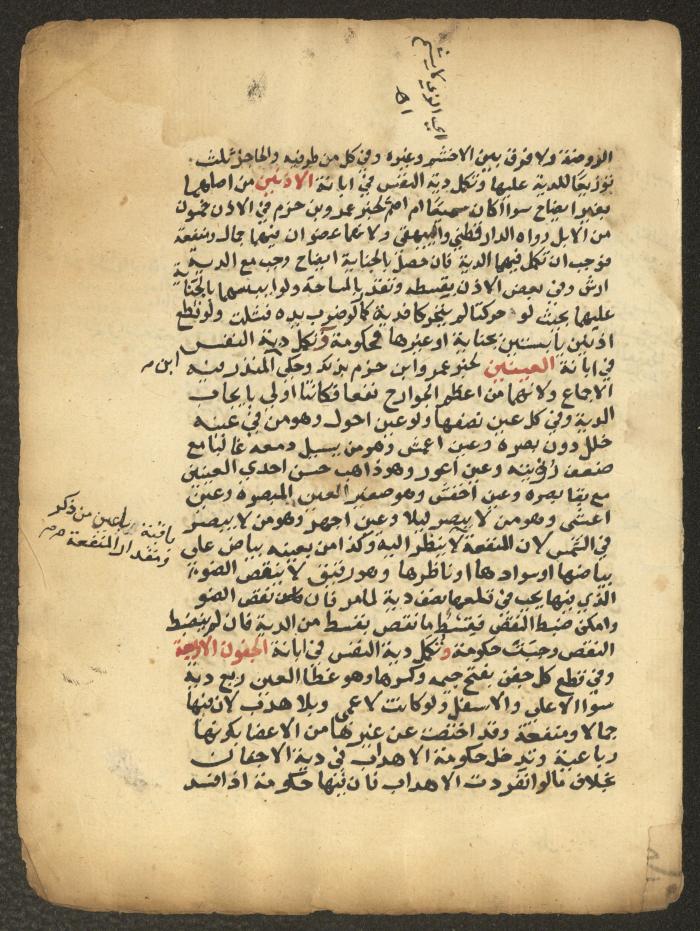 اي الذي لا يشم
اه
الروضة ولا فرق بين الاخشم وغيره وفي كل من طرفيه والحاجز ثلث
توزيعا للدية عليها وتكمل دية النفس في ابانة الاذنين من اصلهما
بغير ايضاح سوا اكان سميعا ام اصم لخبر عمرو بن حزم في الاذن خمسون
من الابل رواه الدارقطني والبيهقي ولانهما عضوان فيهما جمال ومنفعة
فوجب ان تكمل فيهما الدية فان حصل بالجناية ايضاح وجب مع الدية
ارش وفي بعض الاذن بقسطه وتقدر بالمساحة ولو ايبسهما بالجناية
عليهما بحيث لو حركتا لم يتحركا فدية كما لو ضرب يده فشلت ولو قطع
اذنين يابستين بجناية او غيرها فحكومة وتكمل دية النفس
في ابانة العينين لخبر عمرو ابن حزم بذلك وحكى المنذر فيه
ابن
الاجماع ولانهما من اعظم الجوارح نفعا فكانتا اولى بايجاب
الدية وفي كل عين نصفها ولو عين احول وهو من في عينه
خلل دون بصره وعين اعمش وهو من يسيل دمعه غالبا مع
ضعف رؤيته وعين اعور وهو ذاهب حس احدي العينين
مع بقا بصره وعين اخفش وهو صغير العين المبصرة وعين
اعشى وهو من لا يبصر ليلا وعين اجهر وهو من لا يبصر
في الشمس لان المنفعة لا ينظر اليها وكذا من بعينه بياض على
باقية باعين من ذكر
ومقدار المنفعة
بياضها او سوادها او ناظرها وهو رقيق لا ينقص الضوء
الذي فيها يجب في قلعها نصف دية لما مر فان نقص الضو
وامكن ضبط النقص فيقسط ما نقص بقسط من الدية فان لم ينضبط
النقص وجبت حكومة وتكمل دية النفس في ابانة الجفون الاربعة
وفي قطع كل جفن بفتح جيمه وكسرها وهو غطا العين ربع دية
سوا الاعلى والاسفل ولو كانت لاعمى وبلا هدب لان فيها
جمالا ومنفعة وقد اختصت عن غيرها من الاعضا بكونها
رباعية وتدخل حكومة الاهداب في دية الاجفان
بخلاف ما لو انفردت الاهداب فان فيها حكومة اذا فسد